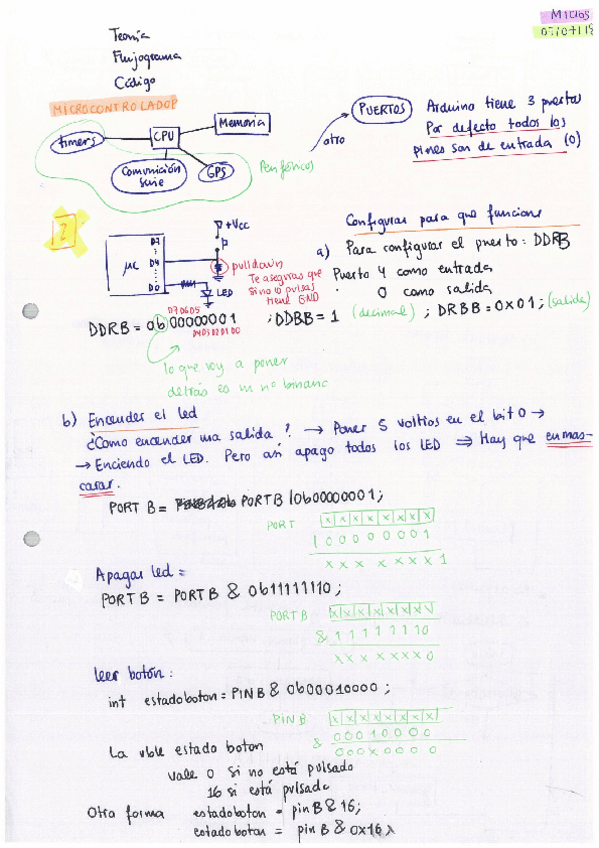 Micros
05/04/18
Teoría
Flujograma
Código
MICROCONTROLADOR
timers
CPU
Memoria
Comunicación
Serie
GPS
Periféricos
otro
PUERTOS
Arduino tiene 3 puertos
Por defecto todos los
pines son de entrada (0)
2
μc
D7
D4
D0
+Vcc
pulldown
LED
Te aseguras que
si no lo pulsas
tiene GND
Configurar para que funcione
a) Para configurar el puerto: DDRB
Puerto 4 como entrada
0 como salida
D7D6D5
DDRB = 0b00000001 ; DDBB = 1 (decimal) ; DRBB = 0x01; (salida)
D4D3D2D1D0
lo que voy a poner
detrás es un nº binario
b) Encender el led
¿Como encender una salida? → Poner 5 voltios en el bit 0 →
→ Enciendo el LED. Pero así apago todos los LED ⇒ Hay que enmas-
carar.
PORT B = PORT B | 0b00000001;
PORT x x x x x x x x
| 0 0 0 0 0 0 0 1
x x x x x x x 1
Apagar led =
PORT B = PORT B & 0b11111110;
PORT B x x x x x x x x
& 1 1 1 1 1 1 1 0
x x x x x x x 0
leer botón:
int estadoboton = PIN B & 0b00010000;
PIN B x x x x x x x x
& 0 0 0 1 0 0 0 0
0 0 0 x 0 0 0 0
La vble estado boton
vale 0 si no está pulsado
16 si está pulsado
Otra forma estadoboton = pin B & 16;
estadoboton = pin B & 0x16